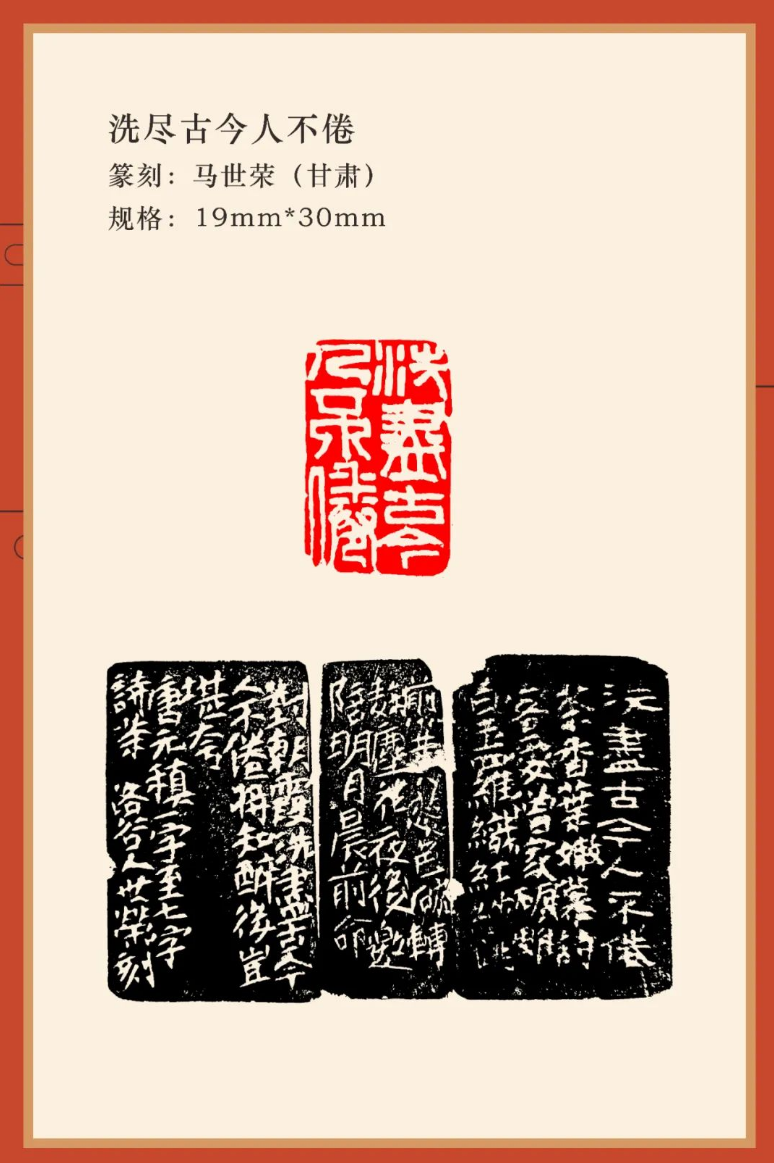 洗尽古今人不倦
篆刻：马世荣（甘肃）
规格：19mm*30mm
洗盡古今
人不倦
洗盡古今人不倦
茶香葉嫩慕詩
客愛僧家碾雕
白玉羅織紅紗
煎黃蕊色碗轉
麴塵花夜後邀
陪明月晨前命
對朝霞洗盡古今
人不倦將知醉後豈
堪夸
唐元稹一字至七字
詩茶 洛谷人世榮刻